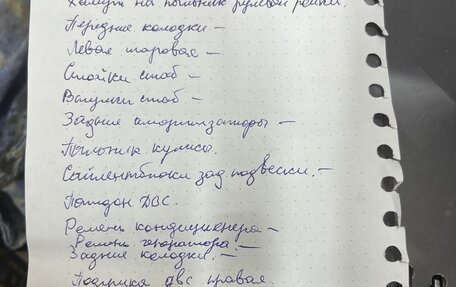 Хомут на пыльник рулевой рейки.
Передние колодки –
Левая шаровая –
Стойки стаб –
Втулки стаб –
Задние амортизаторы –
Пыльник кулисы.
Сайлентблоки зад подвески. –
Поддон ДВС.
Ремень кондиционера –
Ремень генератора. –
Задние колодки. –
Подушка двс правая.